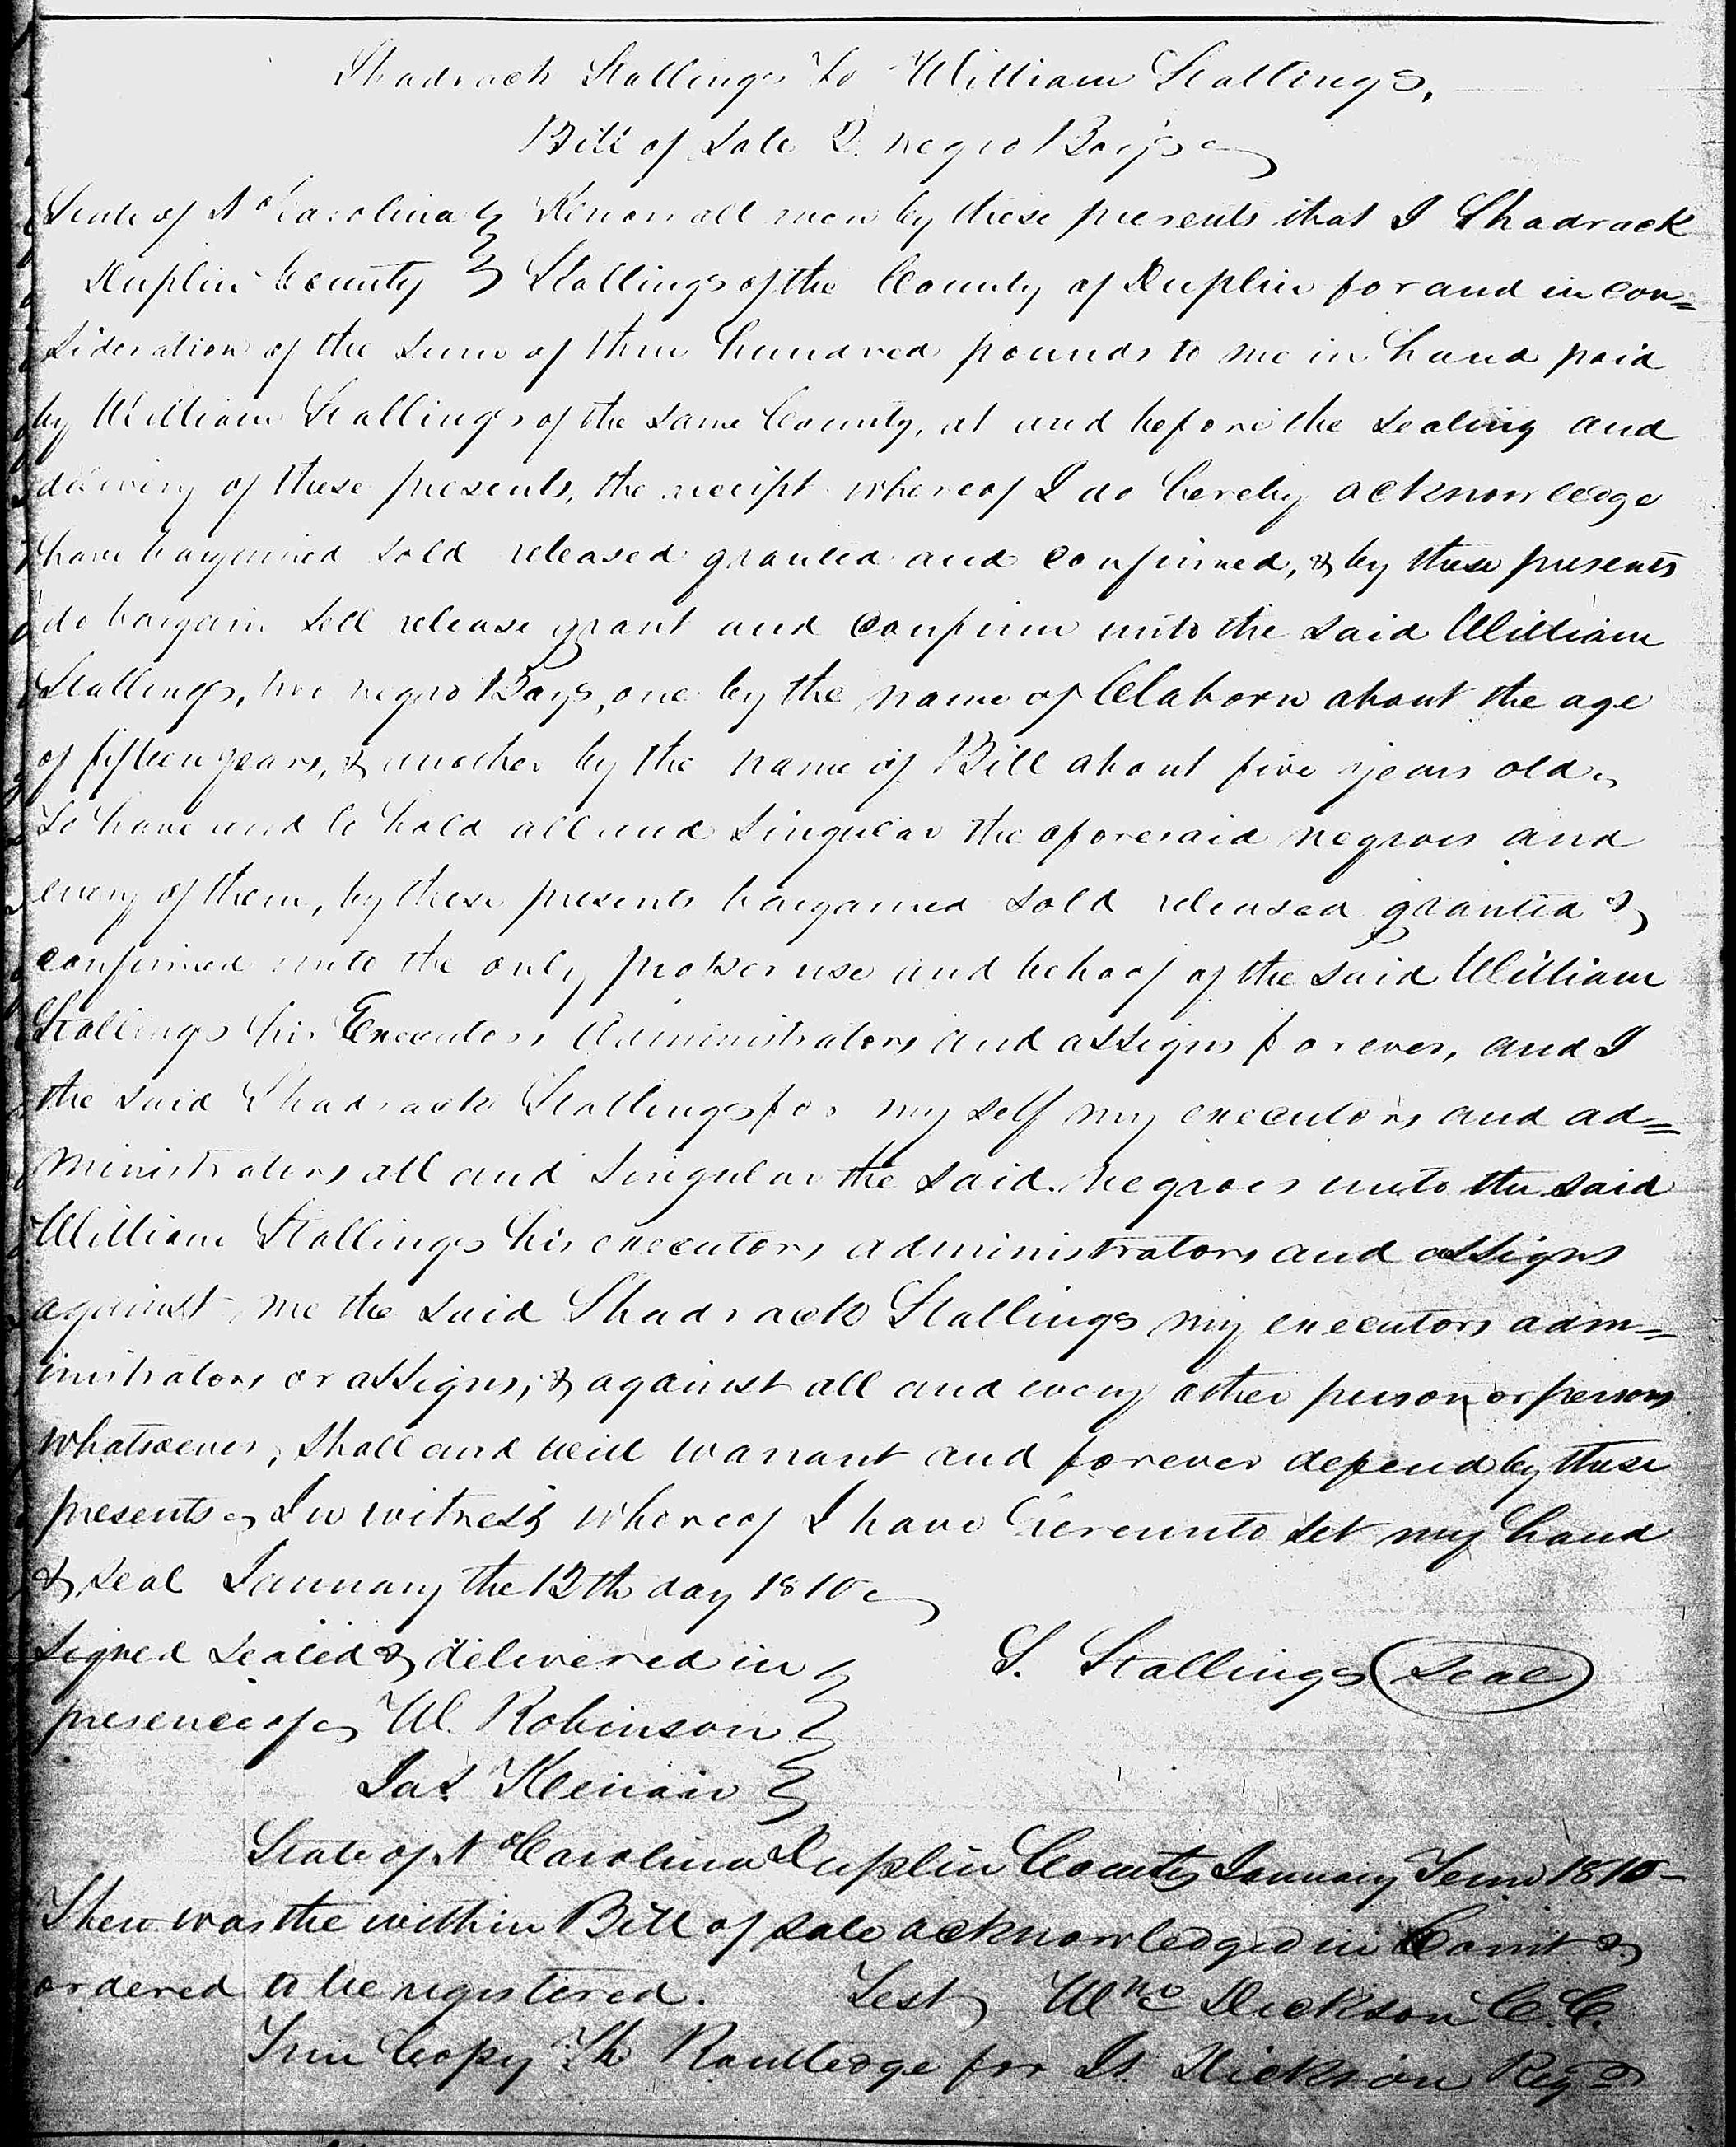 Shadrach Stallings To William Stallings,
Bill of Sale 2. negro Boys
State of No Carolina } Know all men by these presents that I Shadrack
Duplin County } Stallings of the County of Duplin for and in con=
sideration of the sum of three hundred pounds to me in hand paid
by William Stallings of the same County, at and before the sealing and
delivery of these presents, the receipt whereof I do hereby acknowledge
have bargained sold released granted and confirmed, & by these presents
do bargain sell release grant and confirm unto the said William
Stallings, two negro Boys, one by the name of Claborn about the age
of fifteen years, & another by the name of Bill about five years old
To have and to hold all and singular the aforesaid negroes and
every of them, by these presents bargained sold released granted &
confirmed unto the only proper use and behoof of the said William
Stallings his Executors Administrators and assigns forever, and I
the said Shadrack Stallings for my self my executors and ad=
ministrators all and singular the said negroes unto the said
William Stallings his executors administrators and assigns
against me the said Shadrack Stallings my executors adm=
inistrators or assigns, & against all and every other person or persons
whatsoever, shall and will warrant and forever defend by these
presents In witness whereof I have hereunto set my hand
& seal January the 12th day 1810
Signed sealed & delivered in } S. Stallings Seal
presence of W. Robinson }
Jas. Kenan }
State of No Carolina Duplin County January Term 1810
Then was the within Bill of sale acknowledged in Court &
ordered to be registered. Test Wm Dickson C.C.
True Copy Th Routledge for Dickson Regr